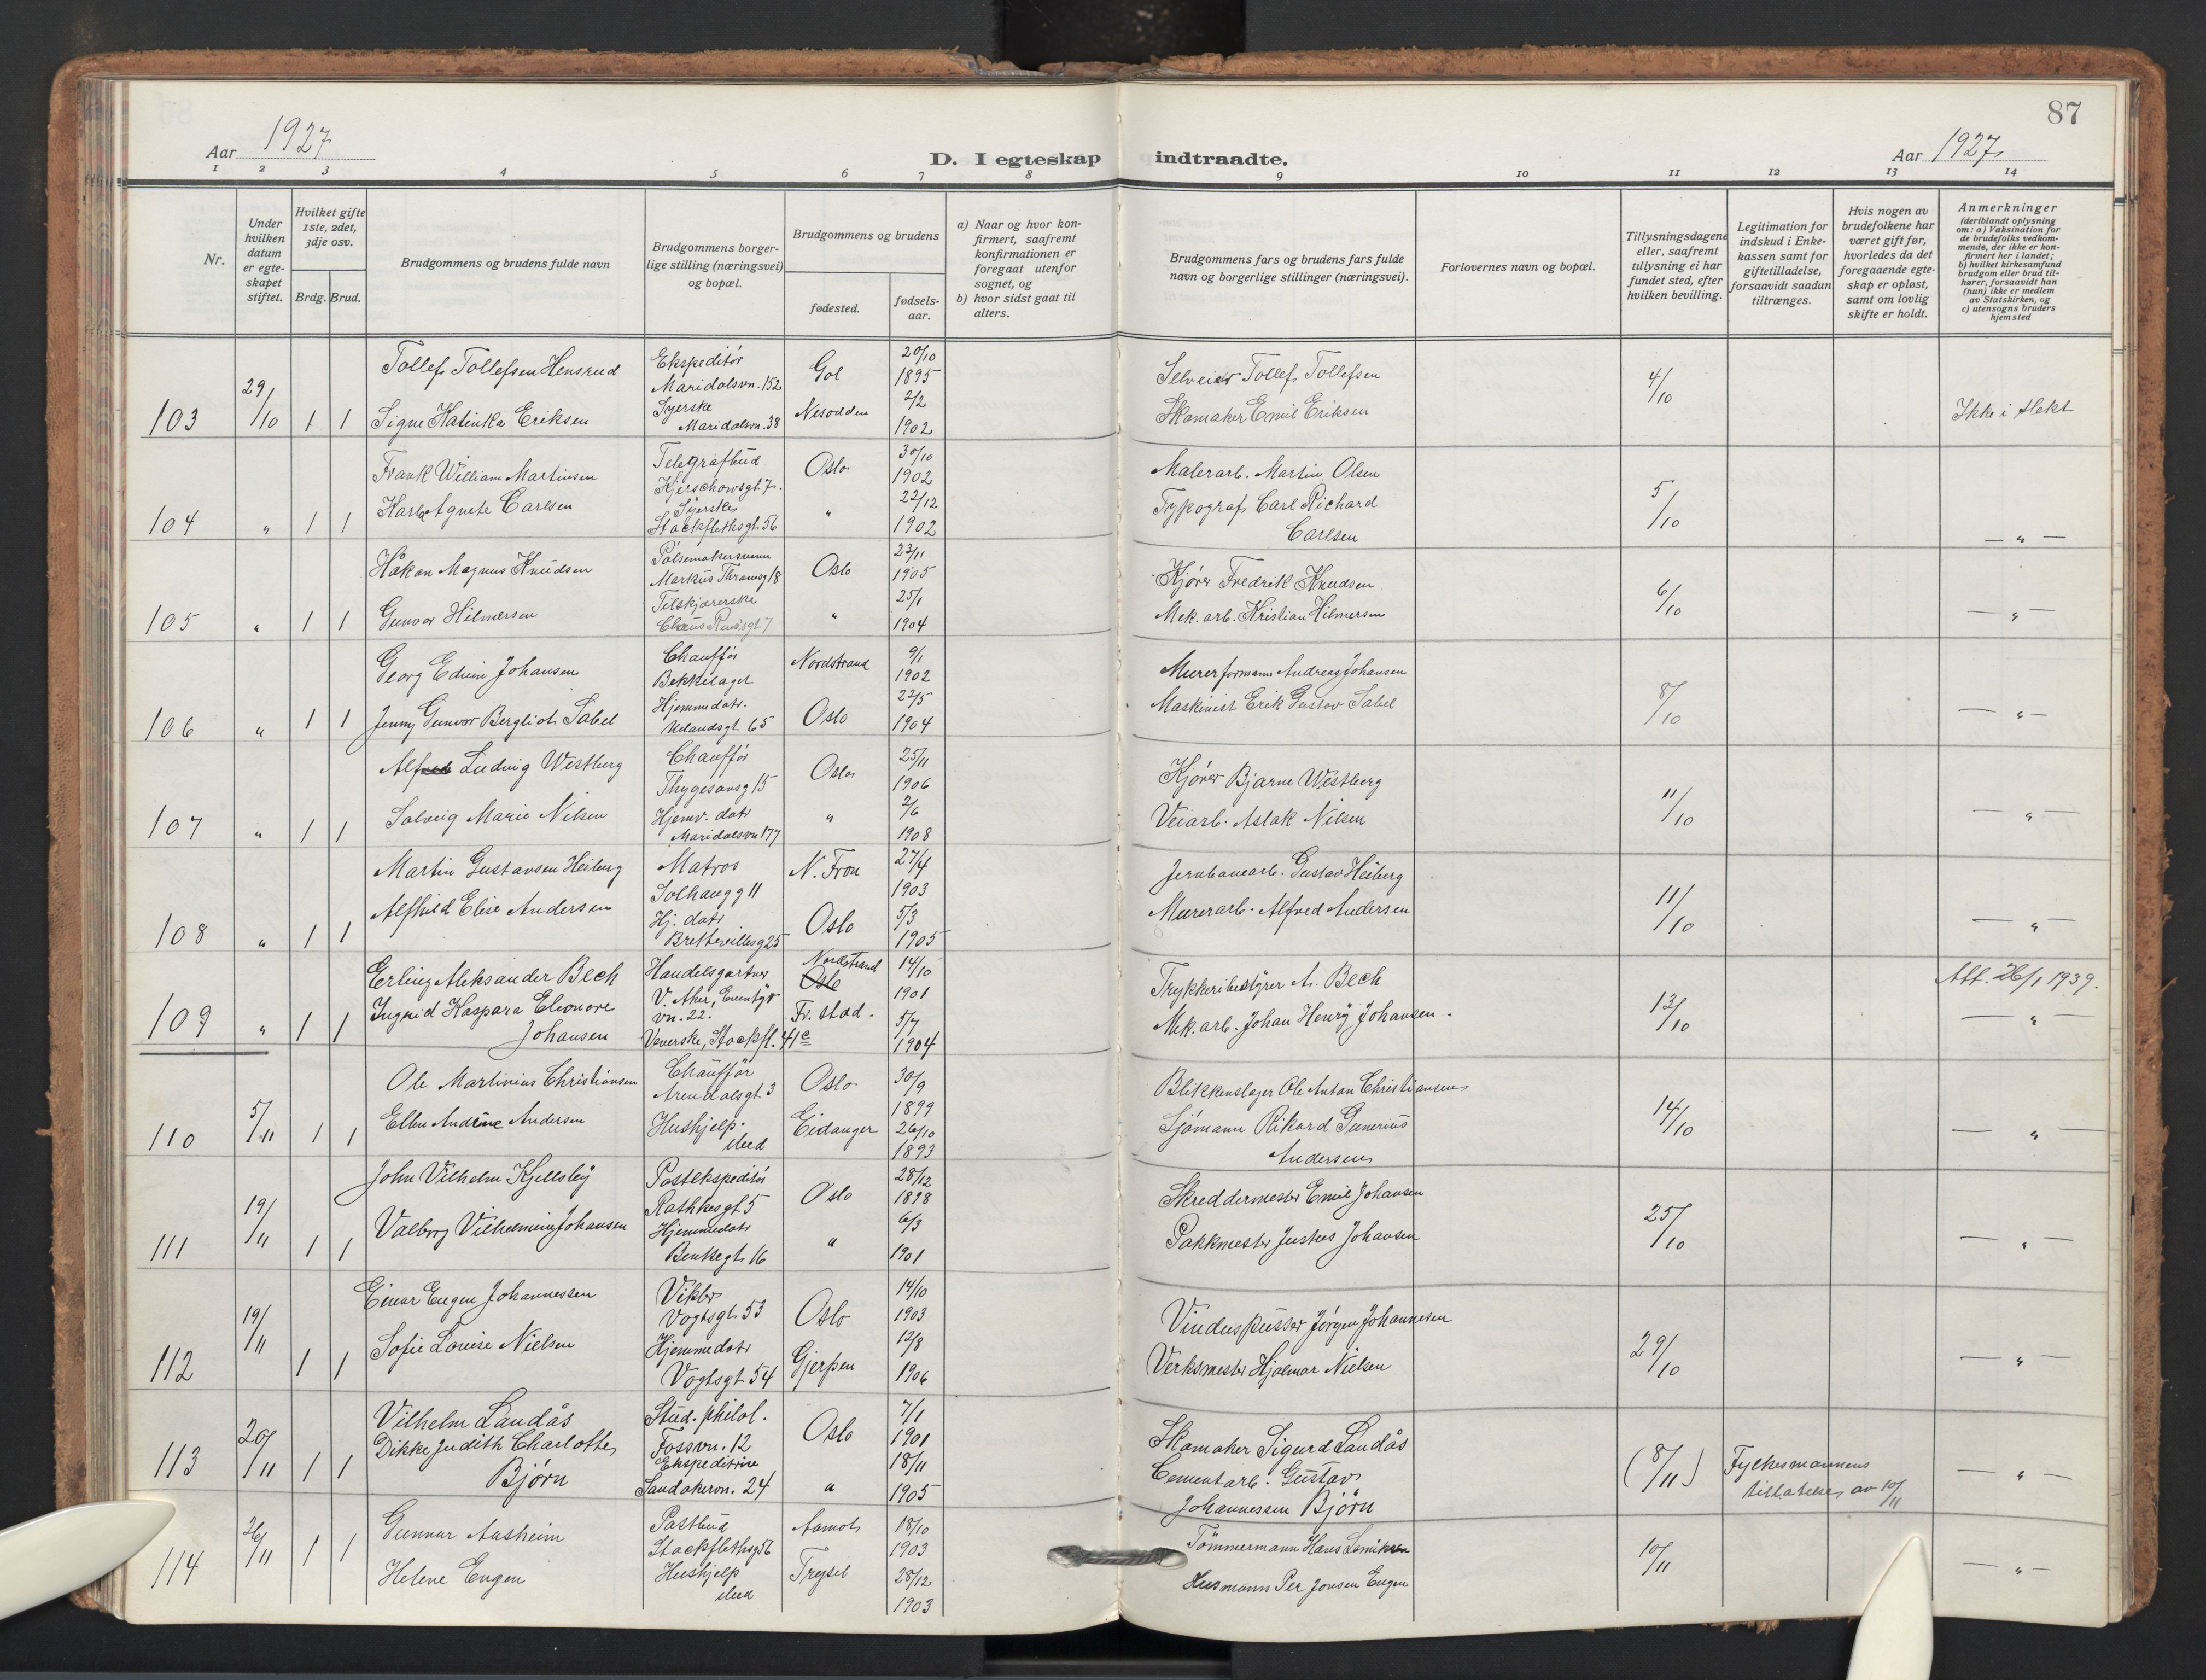 87
Aar 1927
D. I egteskap indtraadte.
Aar 1927
1 2 3 4 5 6 7 8 9 10 11 12 13 14
Nr.
Under hvilken datum er egteskapet stiftet.
Hvilket gifte 1ste, 2det, 3dje osv.
Brdg. Brud.
Brudgommens og brudens fulde navn
Brudgommens borgerlige stilling (næringsvei) og bopæl.
Brudgommens og brudens
fødested.
fødselsaar.
a) Naar og hvor konfirmert, saafremt konfirmationen er foregaat utenfor sognet, og
b) hvor sidst gaat til alters.
Brudgommens fars og brudens fars fulde navn og borgerlige stillinger (næringsvei).
Forlovernes navn og bopæl.
Tillysningsdagene eller, saafremt tillysning ei har fundet sted, efter hvilken bevilling.
Legitimation for indskud i Enkekassen samt for giftetilladelse, forsaavidt saadan tiltrænges.
Hvis nogen av brudefolkene har været gift før, hvorledes da det foregaaende egteskap er opløst, samt om lovlig skifte er holdt.
Anmerkninger (deriblandt oplysning om: a) Vaksination for de brudefolks vedkommende, der ikke er konfirmert her i landet; b) hvilket kirkesamfund brudgom eller brud tilhører, forsaavidt han (hun) ikke er medlem av Statskirken, og c) utensogns bruders hjemsted
Tollef Tollefsen Hensrud Ekspeditør Maridalsvn. 152 Gol 20/10 1895 Selveier Tollef Tollefsen
103 29/10 1 1 Signe Katinka Eriksen Syerske Maridalsvn. 38 Nesodden 2/2 1902 Skomaker Emil Eriksen 4/10 Ikke i slekt
Frank William Martinsen Telegrafbud Kjerschowsgt 7. Oslo 30/10 1902 Malerarb. Martin Olsen
104 " 1 1 Karla Agnete Carlsen Syerske Stockflethsgt 56 " 22/12 1902 Typograf Carl Richard Carlsen 5/10 — " —
Håkon Magnus Knudsen Pølsemakersvenn Markus Thranesg 18 Oslo 23/11 1905 Kjører Fredrik Knudsen
105 " 1 1 Gunvor Hilmersen Tilskjærerske Claus Riisgt 7 " 25/1 1904 Mek. arb. Kristian Hilmersen 6/10 — " —
Georg Edvin Johansen Chauffør Bekkelaget Nordstrand 9/1 1902 Murerformann Andreas Johansen
106 " 1 1 Jenny Gunvor Bergliot Sabel Hjemmedatr. Uelandsgt 65 Oslo 22/5 1904 Maskinist Erik Gustav Sabel 8/10 — " —
Alf Ludvig Westberg Chauffør Thygesonsg 15 Oslo 25/11 1906 Kjører Bjarne Westberg
107 " 1 1 Solveig Marie Nilsen Hjemv. datr Maridalsvn 177 " 2/6 1908 Veiarb. Aslak Nilsen 11/10 — " —
Martin Gustavsen Heiberg Matros Solhaugg 11 N. Fron 27/4 1903 Jernbanearb. Gustav Heiberg
108 " 1 1 Alfhild Elise Andersen Hj. datr Brettevillesg 25 Oslo 5/3 1905 Murerarb. Alfred Andersen 11/10 — " —
Erling Aleksander Bech Handelsgartner V. Aker, Eventyrvn. 22. Nordstrand Oslo 14/10 1901 Trykkeribestyrer A. Bech Att. 26/1 1939.
109 " 1 1 Ingrid Kaspara Eleonore Johansen Veverske, Stockfl. 41c Fr. stad. 5/7 1904 Mek. arb. Johan Henry Johansen. 13/10 — " —
Ole Martinius Christiansen Chauffør Arendalsgt 3 Oslo 30/9 1899 Blikkenslager Ole Anton Christiansen
110 5/11 1 1 Ellen Andrine Andersen Hushjelp. sted Eidanger 26/10 1893 Sjømann Rikard Gunerius Andersen 14/10 — " —
John Vilhelm Kjellsby Postekspeditør Rathkesgt 5 Oslo 28/12 1898 Skreddermester Emil Johansen
111 19/11 1 1 Valborg Vilhelmine Johansen Hjemmedatr Bentsegt 16 " 6/3 1901 Pakkmester Justus Johansen 25/10 — " —
Einar Eugen Johannessen Vikler Vogtsgt. 53 Oslo 14/10 1903 Vinduspusser Jørgen Johannesen
112 19/11 1 1 Sofie Lovise Nielsen Hjemmedatr Vogtsgt 54 Gjerpen 12/8 1906 Verksmester Hjalmar Nielsen 29/10 — " —
Vilhelm Landås Stud. philol. Fossvn. 12 Oslo 7/1 1901 Skomaker Sigurd Landås
113 20/11 1 1 Dikke Judith Charlotte Bjørn Ekspeditrise Sandakervn. 24 " 18/11 1905 Cementarb. Gustav Johannessen Bjørn (8/11) Fylkesmannens tillatelse av 10/11 — " —
Gunnar Aasheim Postbud Stockflethsg 56 Aamot 18/10 1903 Tømmermann Hans
114 26/11 1 1 Helene Engen Hushjelp sted Trysil 28/12 1903 Husmann Per Jonsen Engen 10/11 — " —